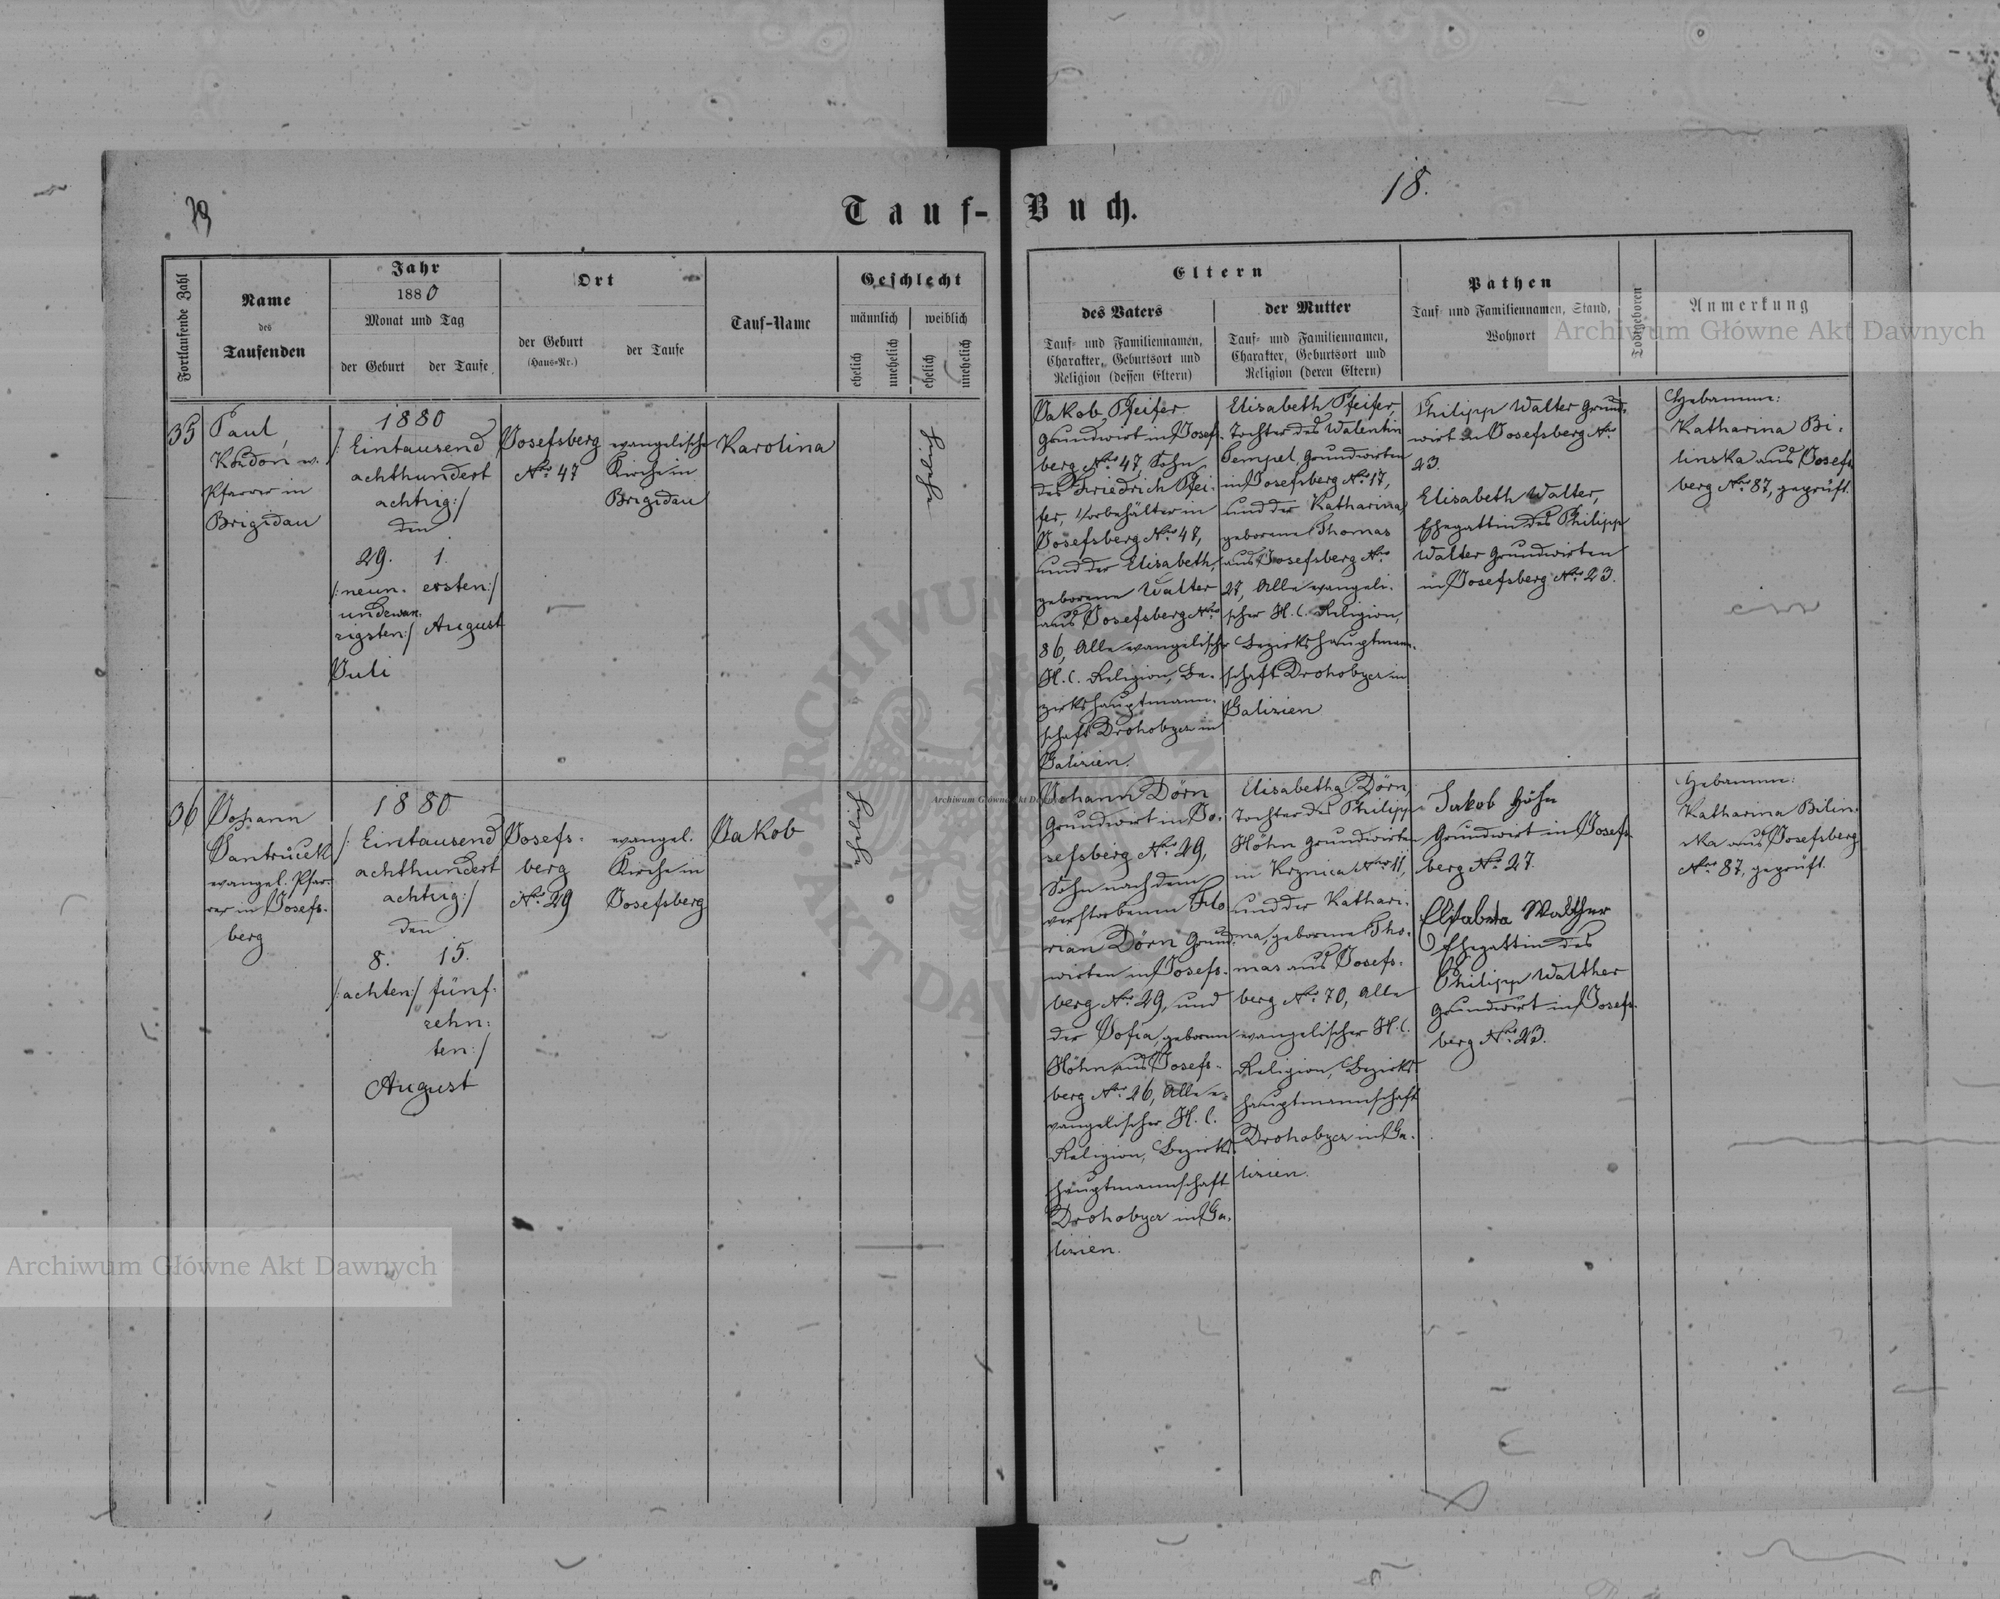 79
Tauf-
Buch.
18.
Fortlaufende Zahl
Name
des
Taufenden
Jahr
1880
Monat und Tag
der Geburt
der Taufe
Ort
der Geburt
(Haus-Nr.)
der Taufe
Tauf-Name
Geschlecht
männlich
weiblich
ehelich
unehelich
ehelich
unehelich
Eltern
des Vaters
Tauf- und Familiennamen,
Charakter, Geburtsort und
Religion (dessen Eltern)
der Mutter
Tauf- und Familiennamen,
Charakter, Geburtsort und
Religion (deren Eltern)
Pathen
Tauf- und Familiennamen, Stand,
Wohnort
Todtgeboren
Anmerkung
35
Paul
Pfarrer in
Brigidau
1880
/: Eintausend
achthundert
achtzig :/
den
29.
/: neun-
undzwan-
zigsten :/
Juli
1.
ersten :/
August
Josefsberg
Nro 47
evangelische
Kirche in
Brigidau
Karolina
ehelich
Jakob Pfeifer
Grundwirt in Josef-
berg Nro 47, Sohn
des Friedrich Pfei-
fer, Vorbehälter in
Josefsberg Nro 47,
und der Elisabeth,
geborene Walter
aus Josefsberg Nro
86, Alle evangelischer
H. C. Religion, Be-
zirkshauptmann-
schaft Drohobycz in
Galizien.
Elisabeth Pfeifer,
Tochter des Walentin
Tempel, Grundwirten
in Josefsberg Nro 17,
und der Katharina
geborene Thomas
aus Josefsberg Nro
27, Alle evangeli-
scher H. C. Religion,
Bezirkshauptmann-
schaft Drohobycz in
Galizien
Philipp Walter Grund-
wirt in Josefsberg Nro
23.
Elisabeth Walter,
Ehegattin des Philipp
Walter Grundwirten
in Josefsberg Nro 23.
Hebamme:
Katharina Bi-
linska aus Josefs-
berg Nro 87, geprüft.
36
Johann
Jantrucek
evangel. Pfar-
rer in Josefs-
berg
1880
/: Eintausend
achthundert
achtzig :/
den
8.
/: achten :/
15.
fünf-
zehn-
ten :/
August
Josefs-
berg
Nro 29
evangel.
Kirche in
Josefsberg
Jakob
ehelich
Johann Dörn
Grundwirt in Jo-
sefsberg Nro 29,
Sohn nach dem
verstorbenen Flo-
rian Dörn Grund-
wirten in Josefs-
berg Nro 29, und
der Sofia, geboren
Höhn aus Josefs-
berg Nro 26, Alle e-
vangelischer H. C.
Religion, Bezirks-
hauptmannschaft
Drohobycz in Ga-
lizien.
Elisabetha Dörn,
Tochter des Philipp
Höhn Grundwirten
in Krznica Nro 11,
und der Kathari-
na, geborene Tho-
mas aus Josefs-
berg Nro 70, Alle
evangelischer H. C.
Religion, Bezirks-
hauptmannschaft
Drohobycz in Ga-
lizien.
Jakob Höhn
Grundwirt in Josefs-
berg Nro 27.
Elisabeta Walther
Ehegattin des
Philipp Walther
Grundwirt in Josefs-
berg Nro 23.
Hebamme:
Katharina Bilin-
ska aus Josefsberg
Nro 87, geprüft.
Archiwum Główne Akt Dawnych
Archiwum Główne Akt Dawnych
ARCHIWUM
AKT DAWNYCH